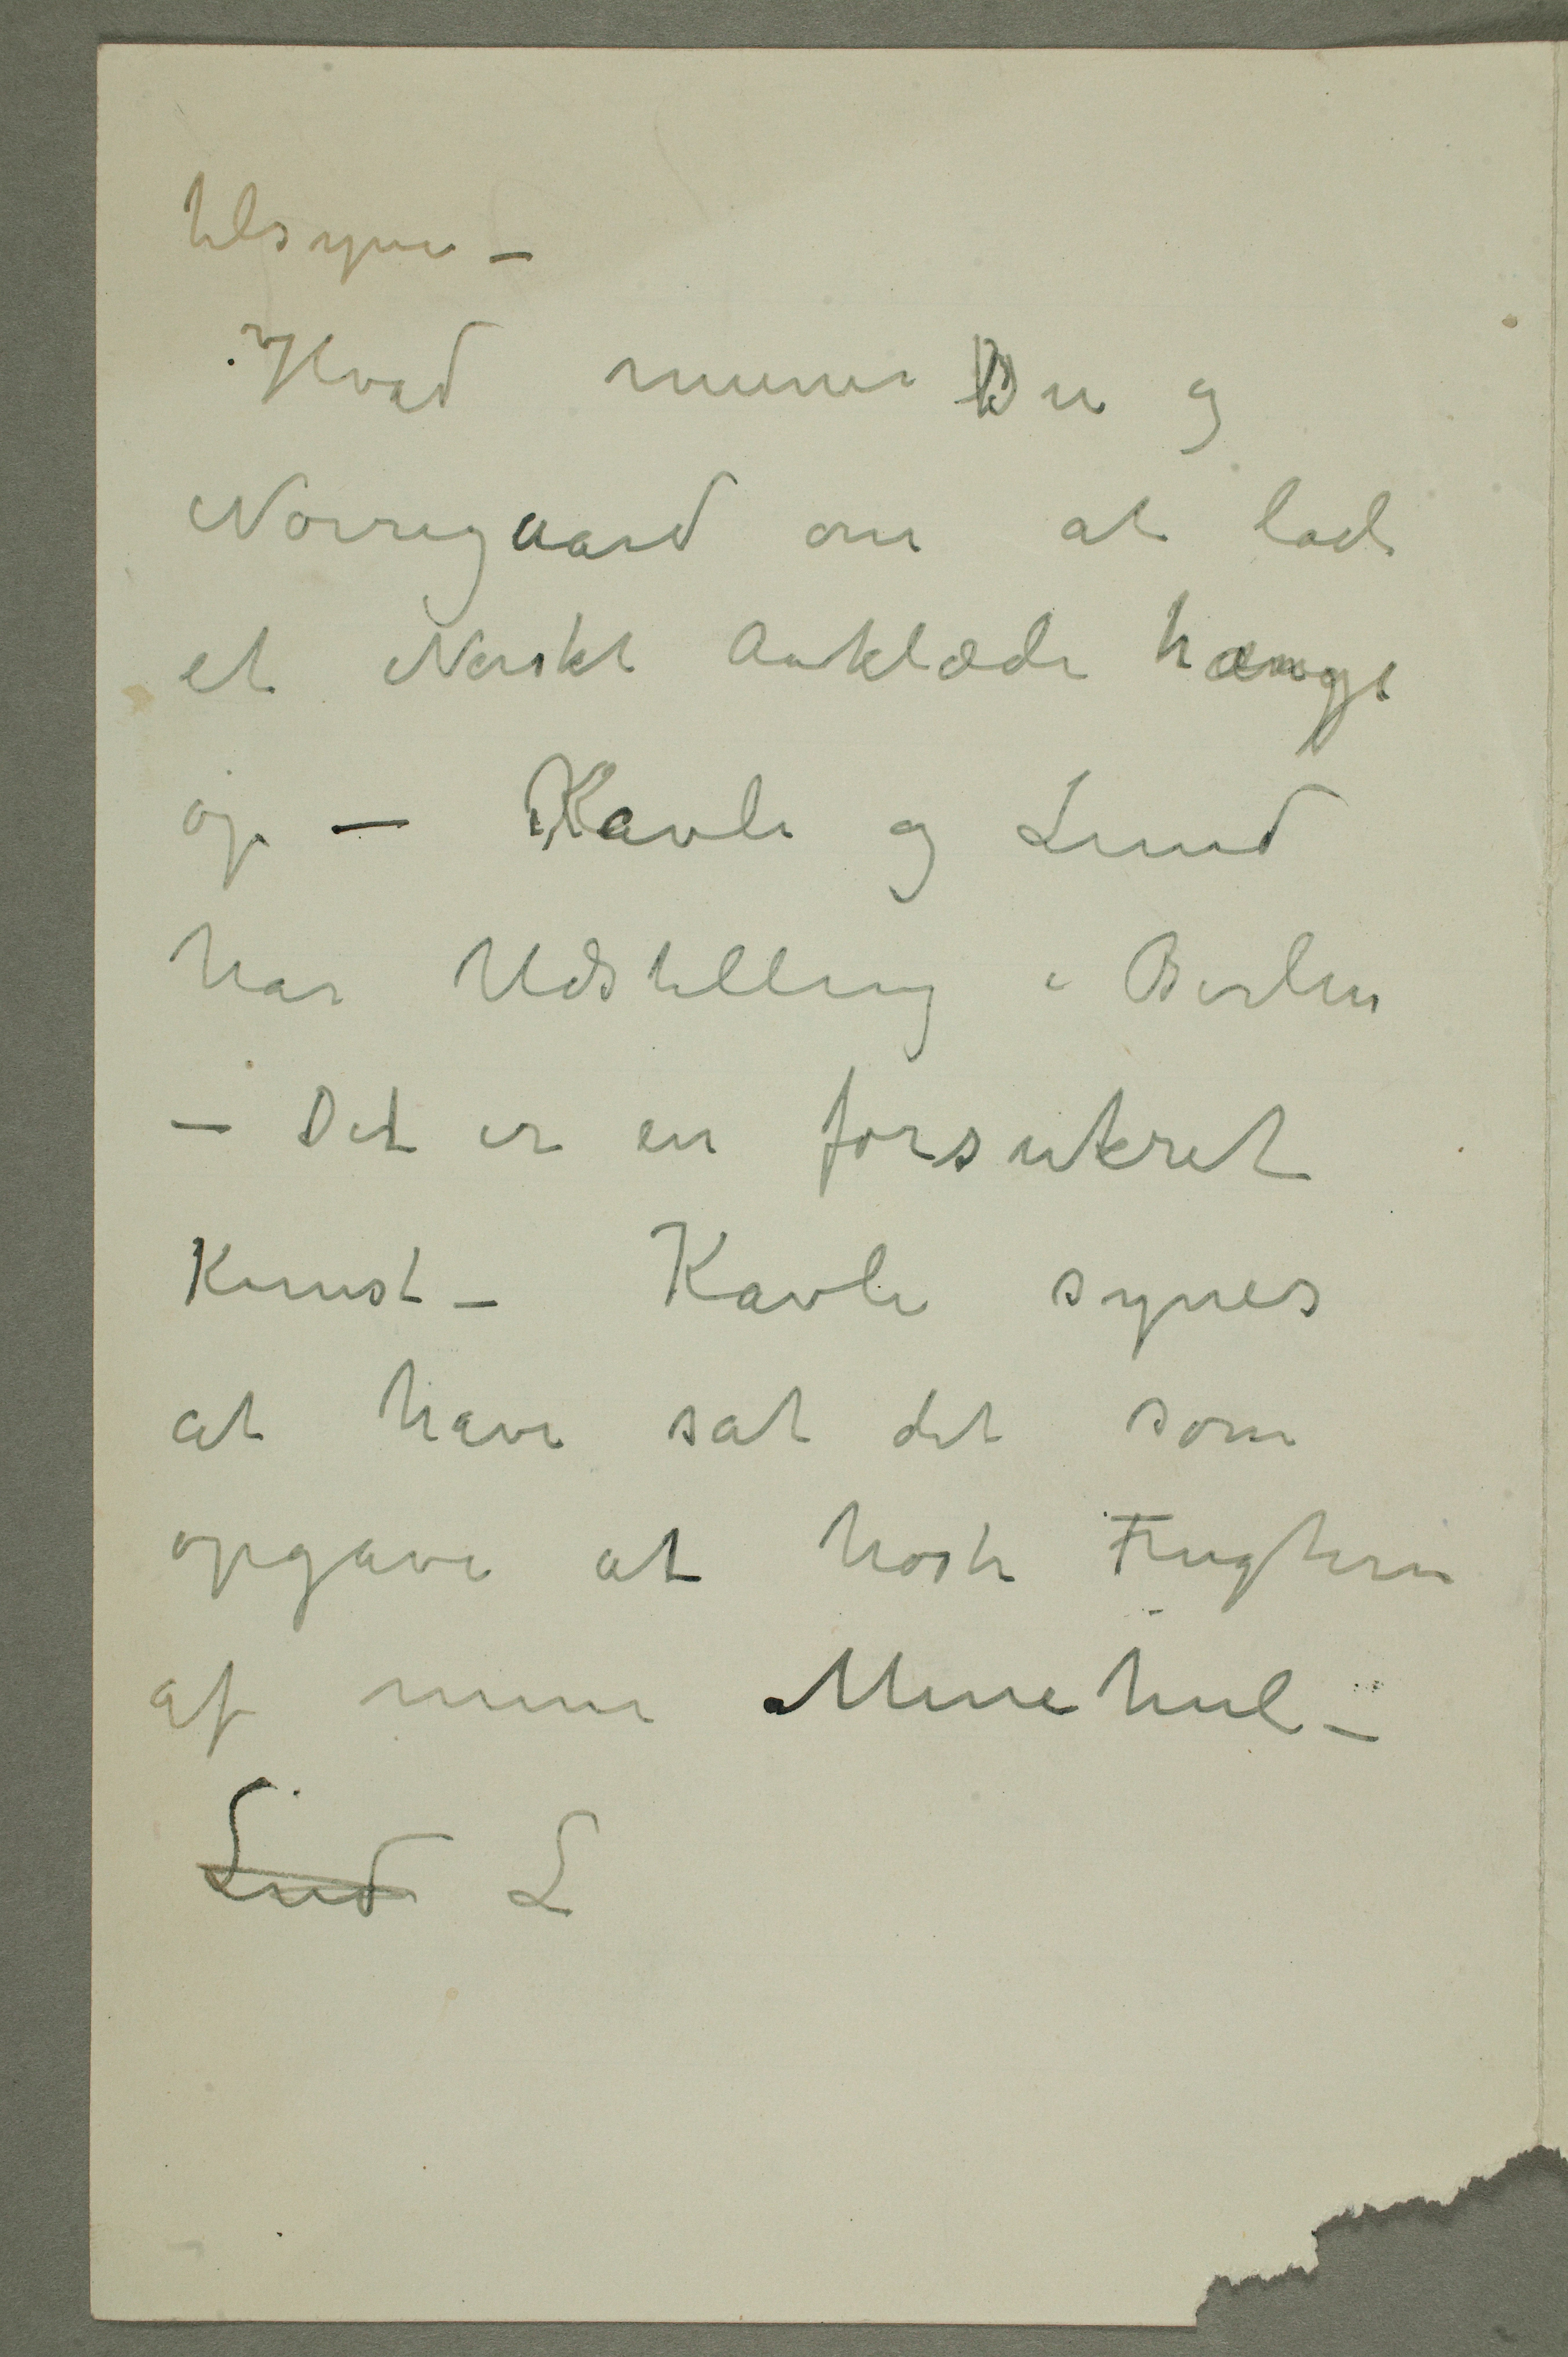 tilsyne –
Hvad mener Du og
Nørregaard om at lade
et Norskt Aaklæde hænge
op – Kavli og Lund
har Udstilling i Berlin
– Det er en forsukret
Kunst – Kavli synes
at have sat det som
opgave at høste Frugterne
af mine Minehul –
Lud L